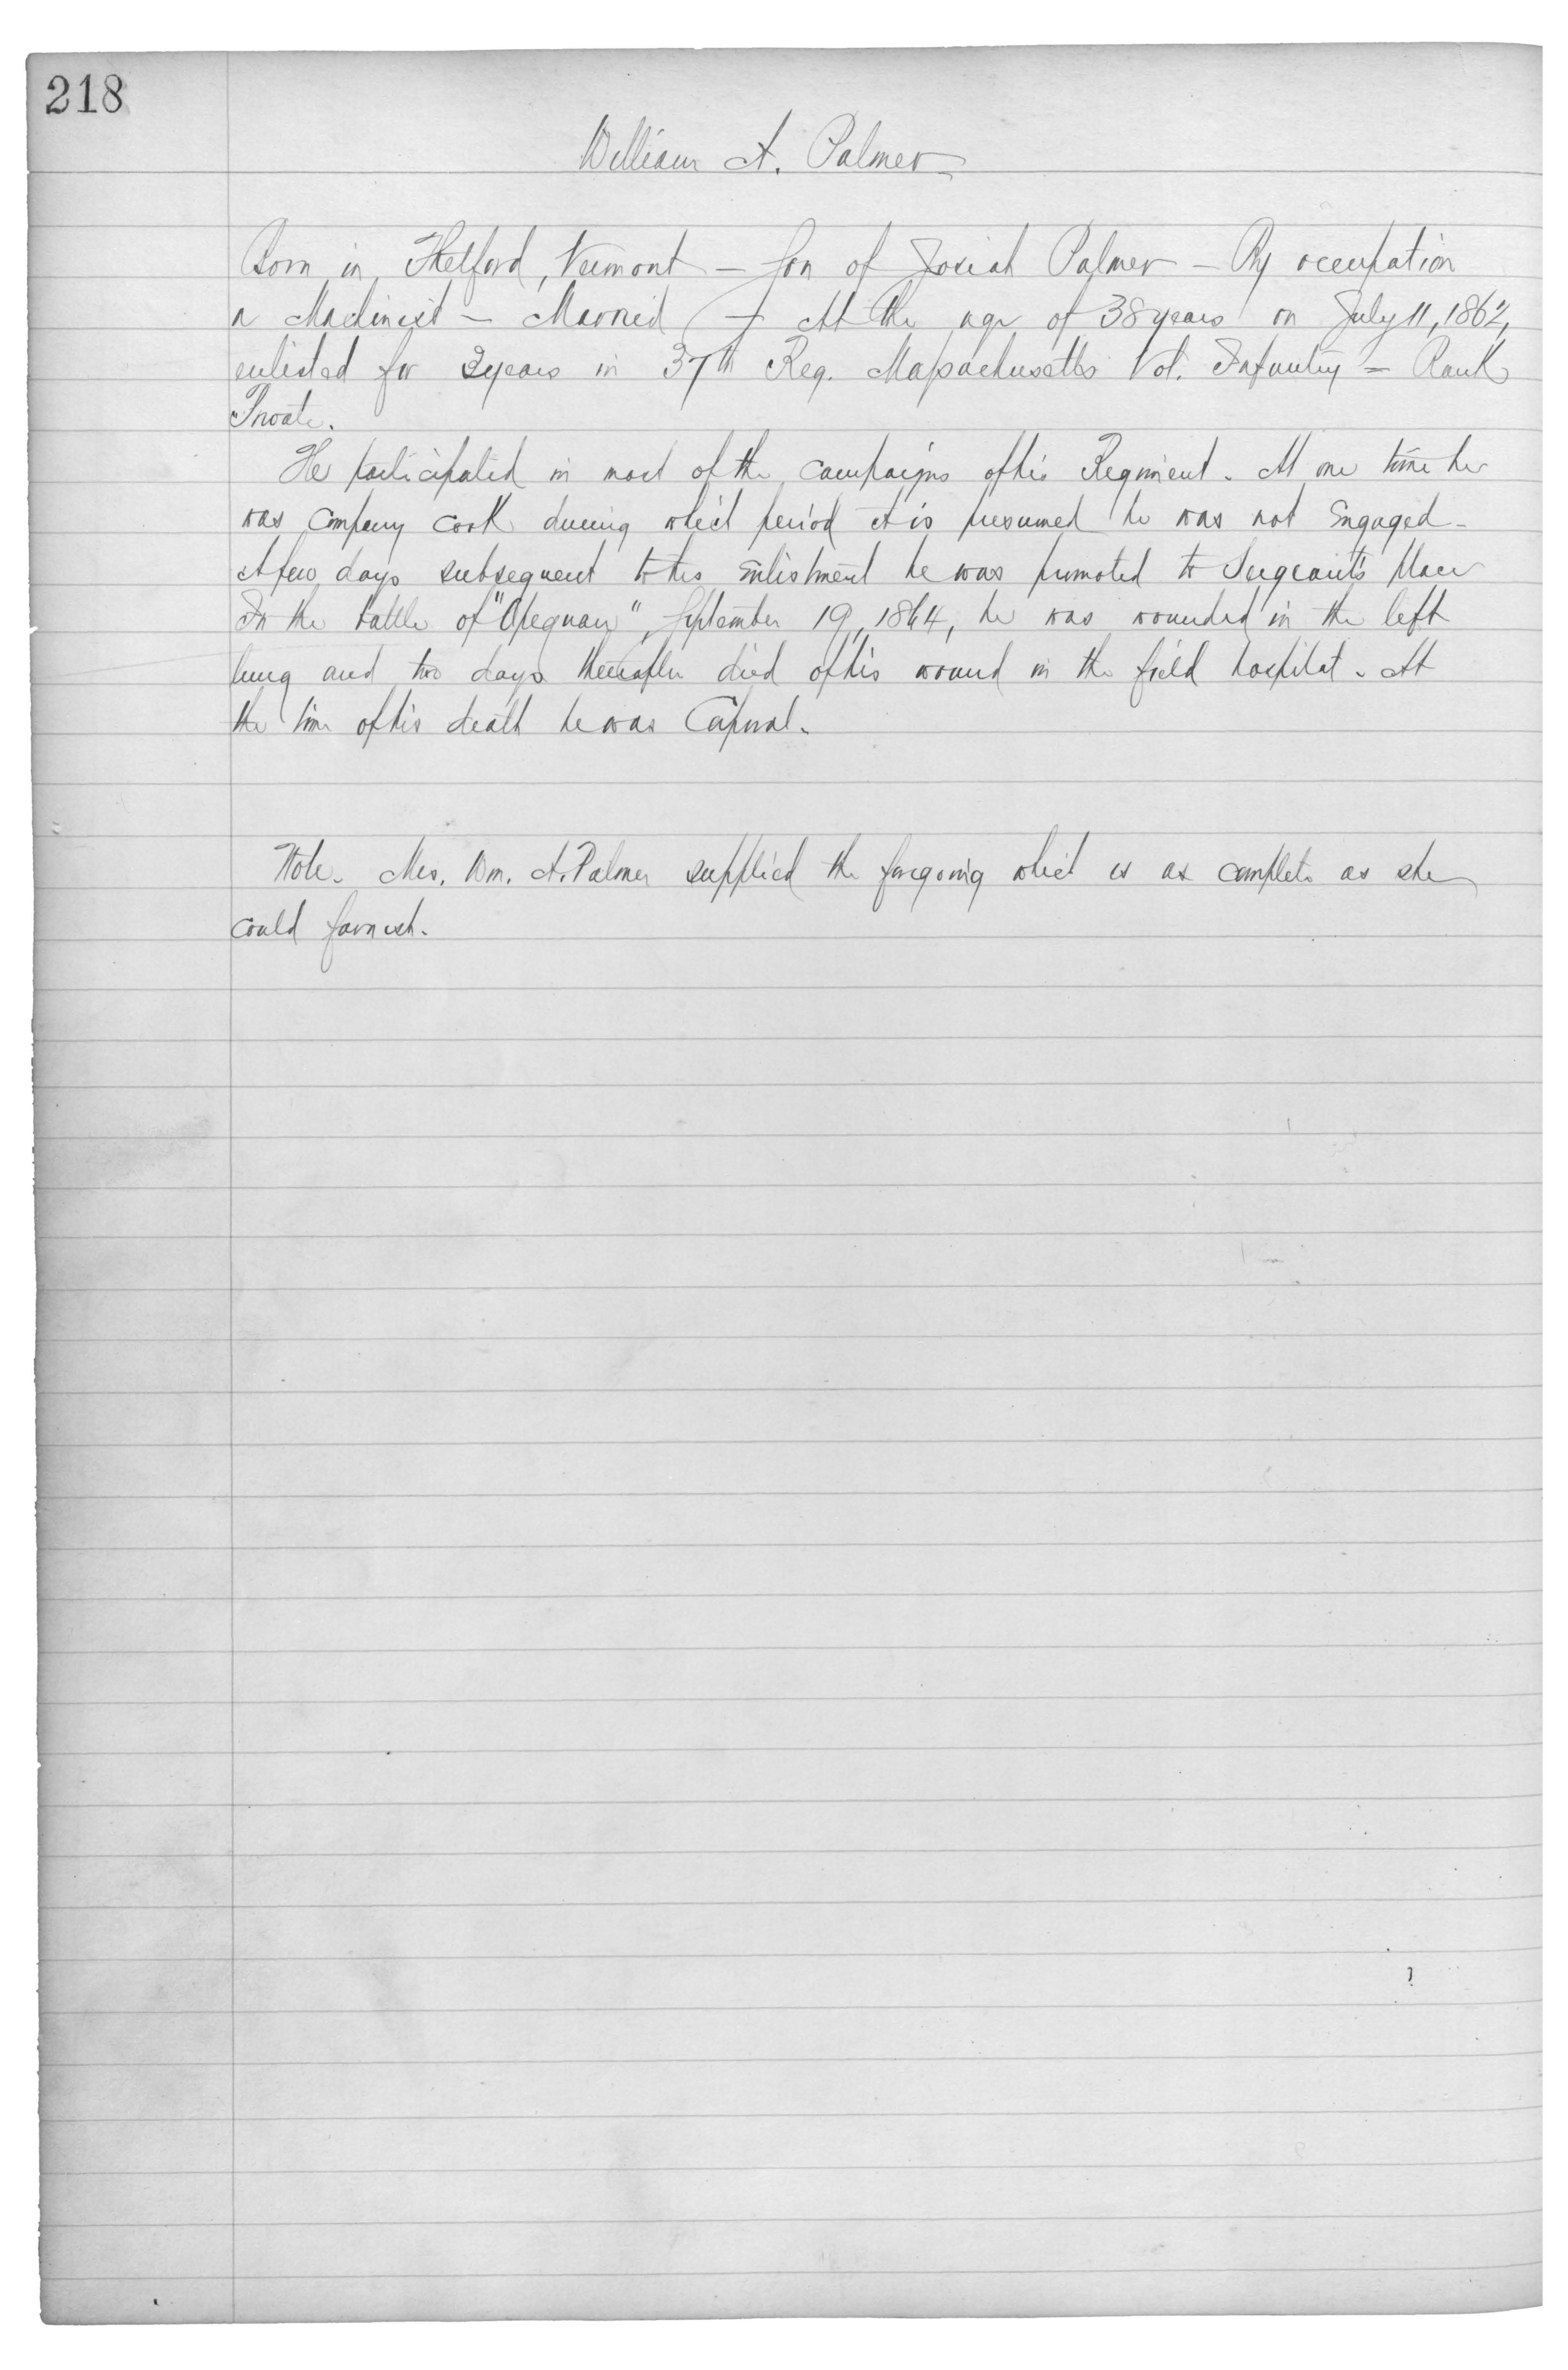 218
William A. Palmer
Born in Thetford, Vermont – Son of Josiah Palmer – By occupation
a Machinist – Married – At the age of 38 years on July 11, 1862,
enlisted for 3 years in 37th Reg. Massachusetts Vol. Infantry – Rank
Private.
He participated in most of the campaigns of his Regiment. At one time he
was company cook during which period it is presumed he was not engaged –
A few days subsequent to his enlistment he was promoted to Sergeant's place
In the battle of "Opequan", September 19, 1864, he was wounded in the left
lung and two days thereafter died of his wound in the field hospital. At
the time of his death he was Corporal.
Note. Mrs. Wm. A. Palmer supplied the foregoing which is as complete as she
could furnish.